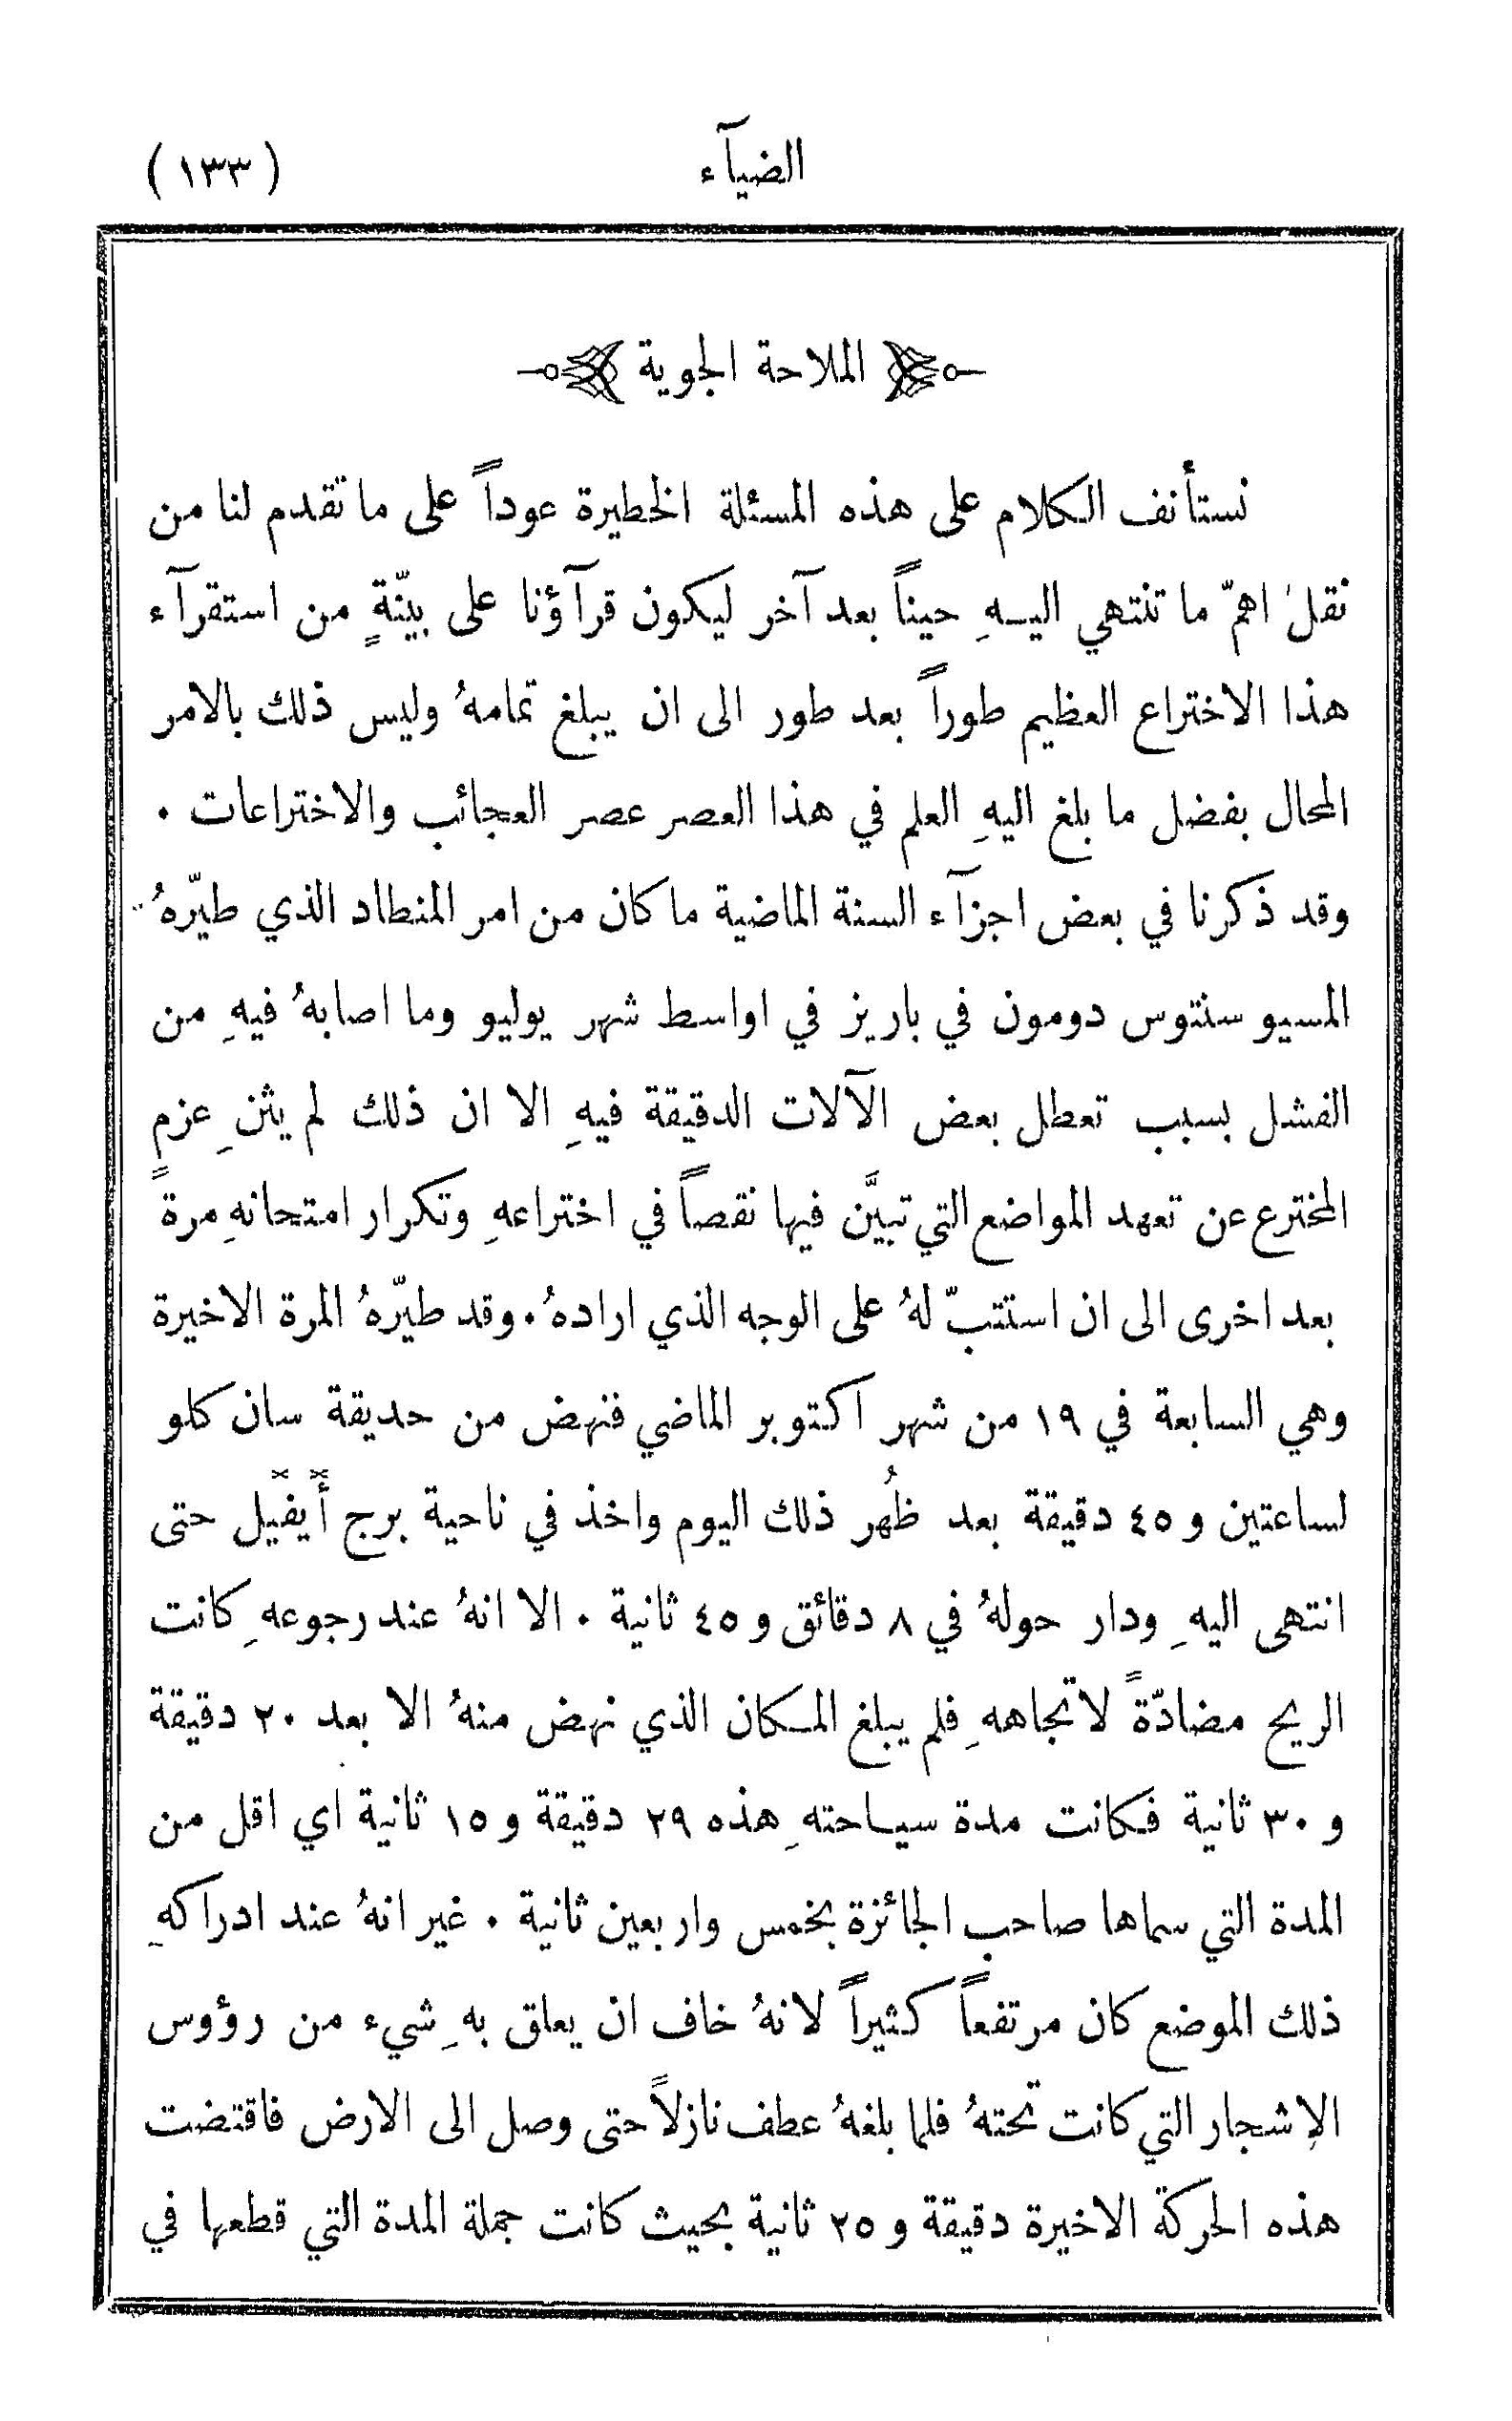 الضيآء
(١٣٣)
الملاحة الجوية
نستأنف الكلام على هذه المسئلة الخطيرة عوداً على ما تقدم لنا من
نقل اهمّ ما تنتهي اليـهِ حيناً بعد آخر ليكون قرآؤنا على بيّنةٍ من استقرآء
هذا الاختراع العظيم طوراً بعد طور الى ان يبلغ تمامهُ وليس ذلك بالامر
المحال بفضل ما بلغ اليهِ العلم في هذا العصر عصر العجائب والاختراعات .
وقد ذكرنا في بعض اجزآء السنة الماضية ما كان من امر المنطاد الذي طيّرهُ
المسيو سنتوس دومون في باريز في اواسط شهر يوليو وما اصابهُ فيهِ من
الفشل بسبب تعطل بعض الآلات الدقيقة فيهِ الا ان ذلك لم يثنِ عزم
المخترع عن تعهد المواضع التي تبيَّن فيها نقصاً في اختراعهِ وتكرار امتحانهِ مرةً
بعد اخرى الى ان استتبّ لهُ على الوجه الذي ارادهُ . وقد طيّرهُ المرة الاخيرة
وهي السابعة في ١٩ من شهر اكتوبر الماضي فنهض من حديقة سان كلو
لساعتين و ٤٥ دقيقة بعد ظُهر ذلك اليوم واخذ في ناحية برج أيفيل حتى
انتهى اليهِ ودار حولهُ في ٨ دقائق و ٤٥ ثانية . الا انهُ عند رجوعهِ كانت
الريح مضادّةً لاتجاههِ فلم يبلغ المـكان الذي نهض منهُ الا بعد ٢٠ دقيقة
و ٣٠ ثانية فـكانت مدة سيـاحتهِ هذه ٢٩ دقيقة و ١٥ ثانية اي اقل من
المدة التي سماها صاحب الجائزة بخمس واربعين ثانية . غير انهُ عند ادراكهِ
ذلك الموضع كان مرتفعاً كثيراً لانهُ خاف ان يعلق بهِ شيء من رؤوس
الإشجار التي كانت تحتهُ فلما بلغهُ عطف نازلاً حتى وصل الى الارض فاقتضت
هذه الحركة الاخيرة دقيقة و ٢٥ ثانية بحيث كانت جملة المدة التي قطعها في